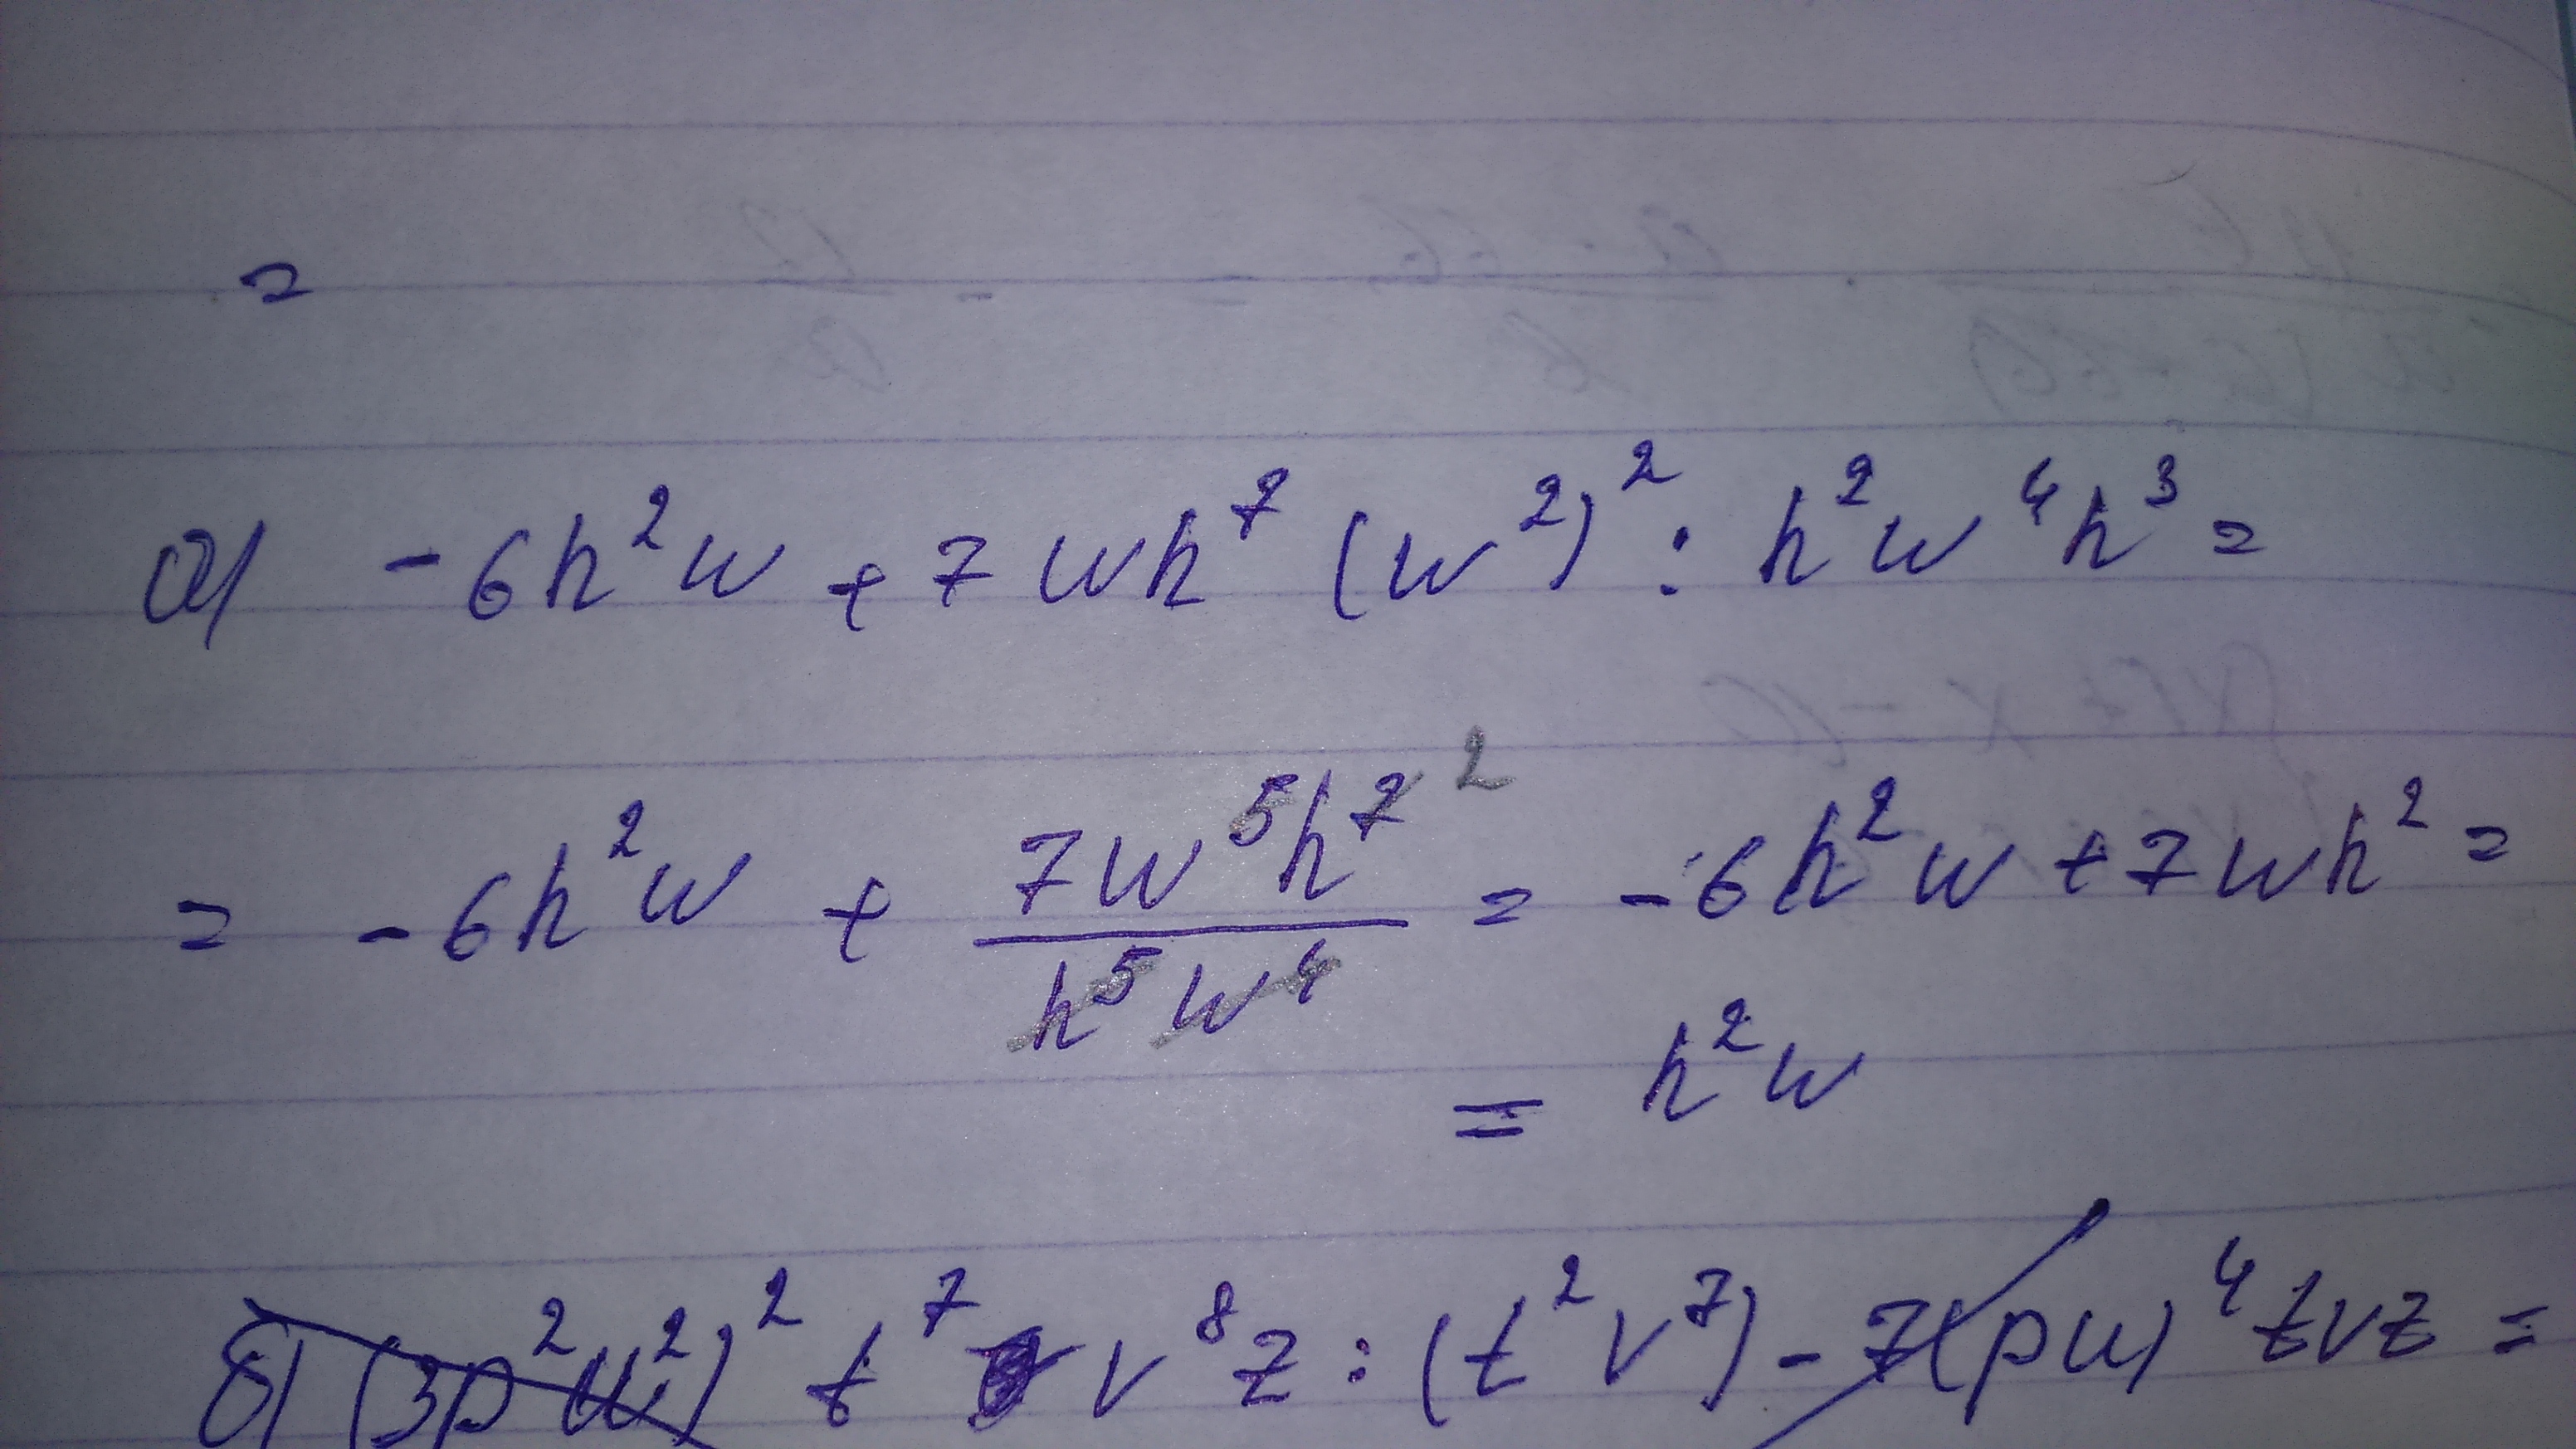 =
а) -6h²w + 7wh⁷(w²)² : h²w⁴h³ =
= -6h²w + 7w⁵h⁷ ² / h⁵w⁴ = -6h²w + 7wh² =
= h²w
б) (3p²u²)² t⁷ v⁸z : (t²v⁷) - 7(pu)⁴tvz =